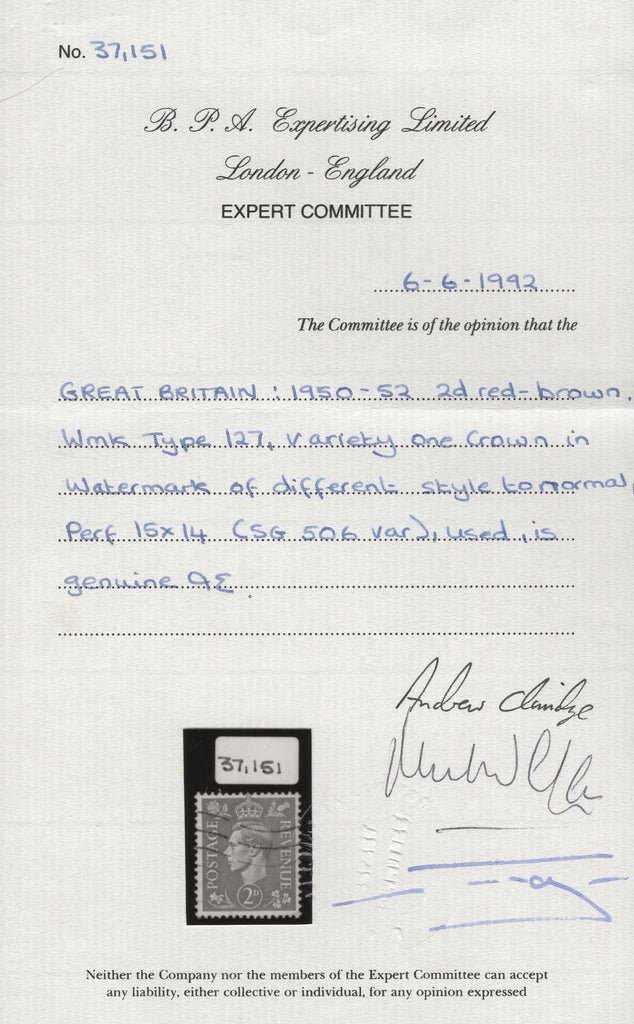 No. 37,151
B. P. A. Expertising Limited
London - England
EXPERT COMMITTEE
6-6-1992
The Committee is of the opinion that the
GREAT BRITAIN : 1950-52 2d red-brown,
Wmk Type 127, variety one Crown in
Watermark of different style to normal,
Perf 15x14 (SG 506 var), used, is
genuine
Andrew Claridge
37,151
POSTAGE
REVENUE
2D
Neither the Company nor the members of the Expert Committee can accept
any liability, either collective or individual, for any opinion expressed